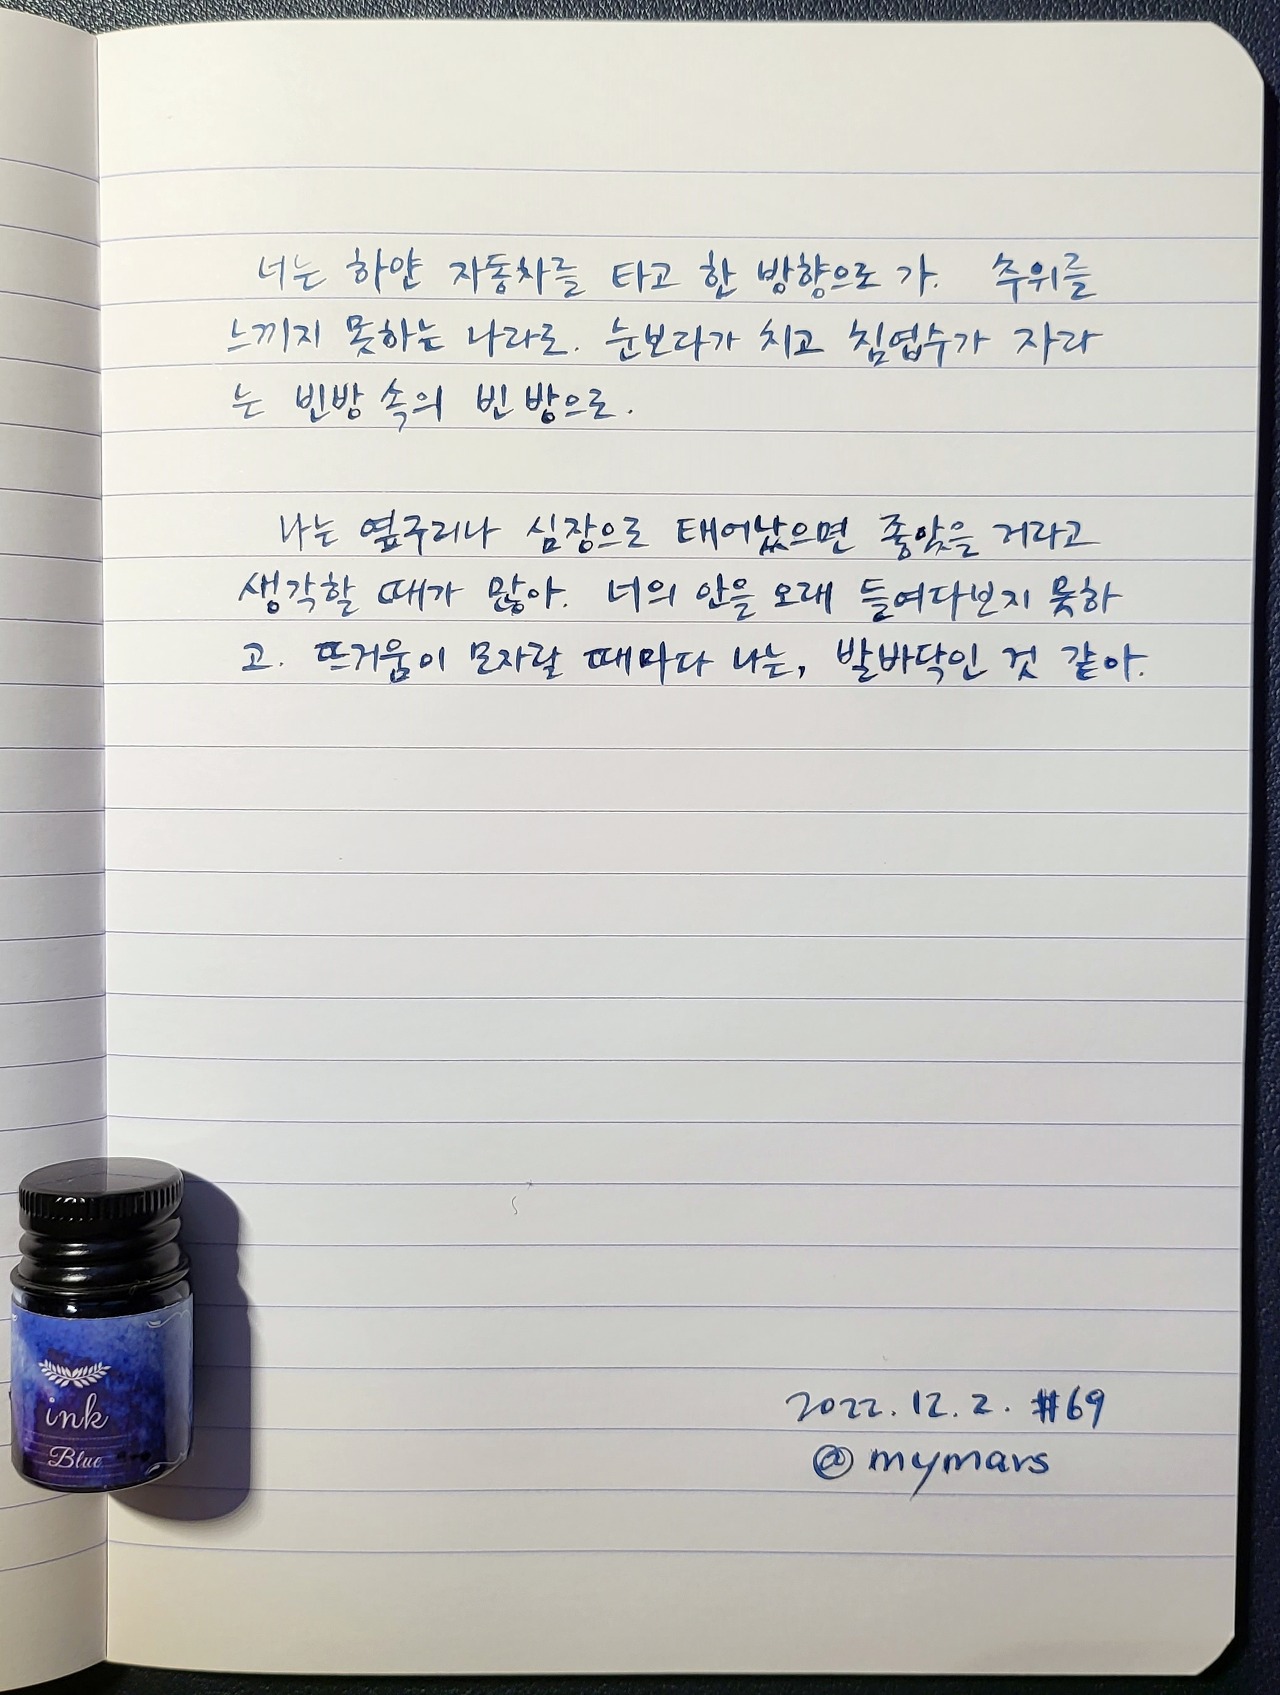 너는 하얀 자동차를 타고 한 방향으로 가. 추위를
느끼지 못하는 나라로. 눈보다가 치고 침엽수가 자라
는 빈방 속의 빈 방으로.
나는 옆구리나 심장으로 태어났으면 좋았을 거라고
생각할 때가 많아. 너의 안을 오래 들여다보지 못하
고. 뜨거움이 모자랄 때마다 나는, 발바닥인 것 같아.
2022. 12. 2. #69
@mymars
ink
Blue